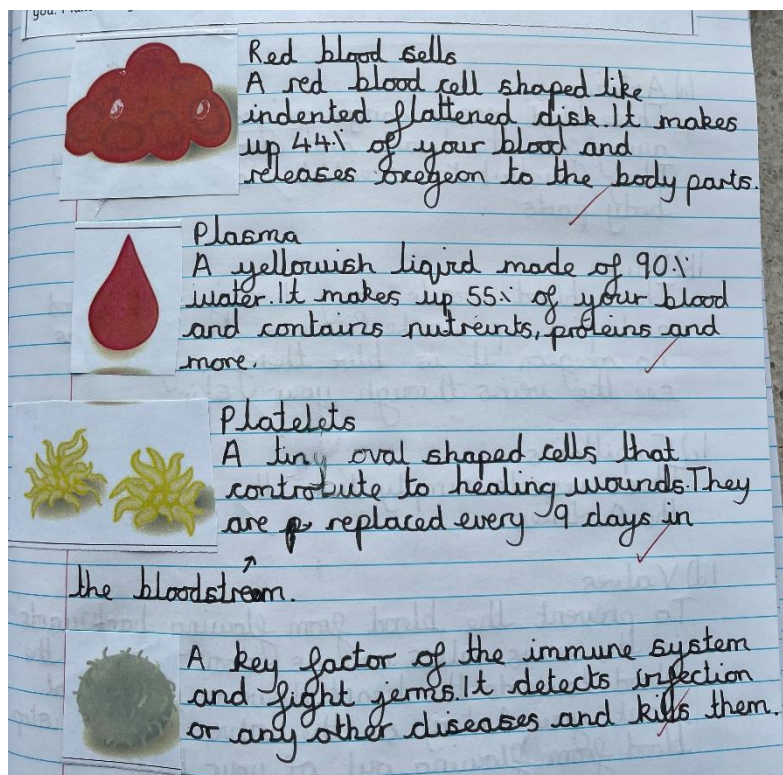 Red blood sells
A red blood cell shaped like
indented flattened disk. It makes
up 44% of your blood and
releases oxegeon to the body parts.
Plasma
A yellowish liqird made of 90%
water. It makes up 55% of your blood
and contains nutreints, proteins and
more.
Platelets
A tiny oval shaped cells that
controbute to healing wounds. They
are replaced every 9 days in
the bloodstream.
A key factor of the immune system
and fight jerms. It detects infection
or any other diseases and kills them.